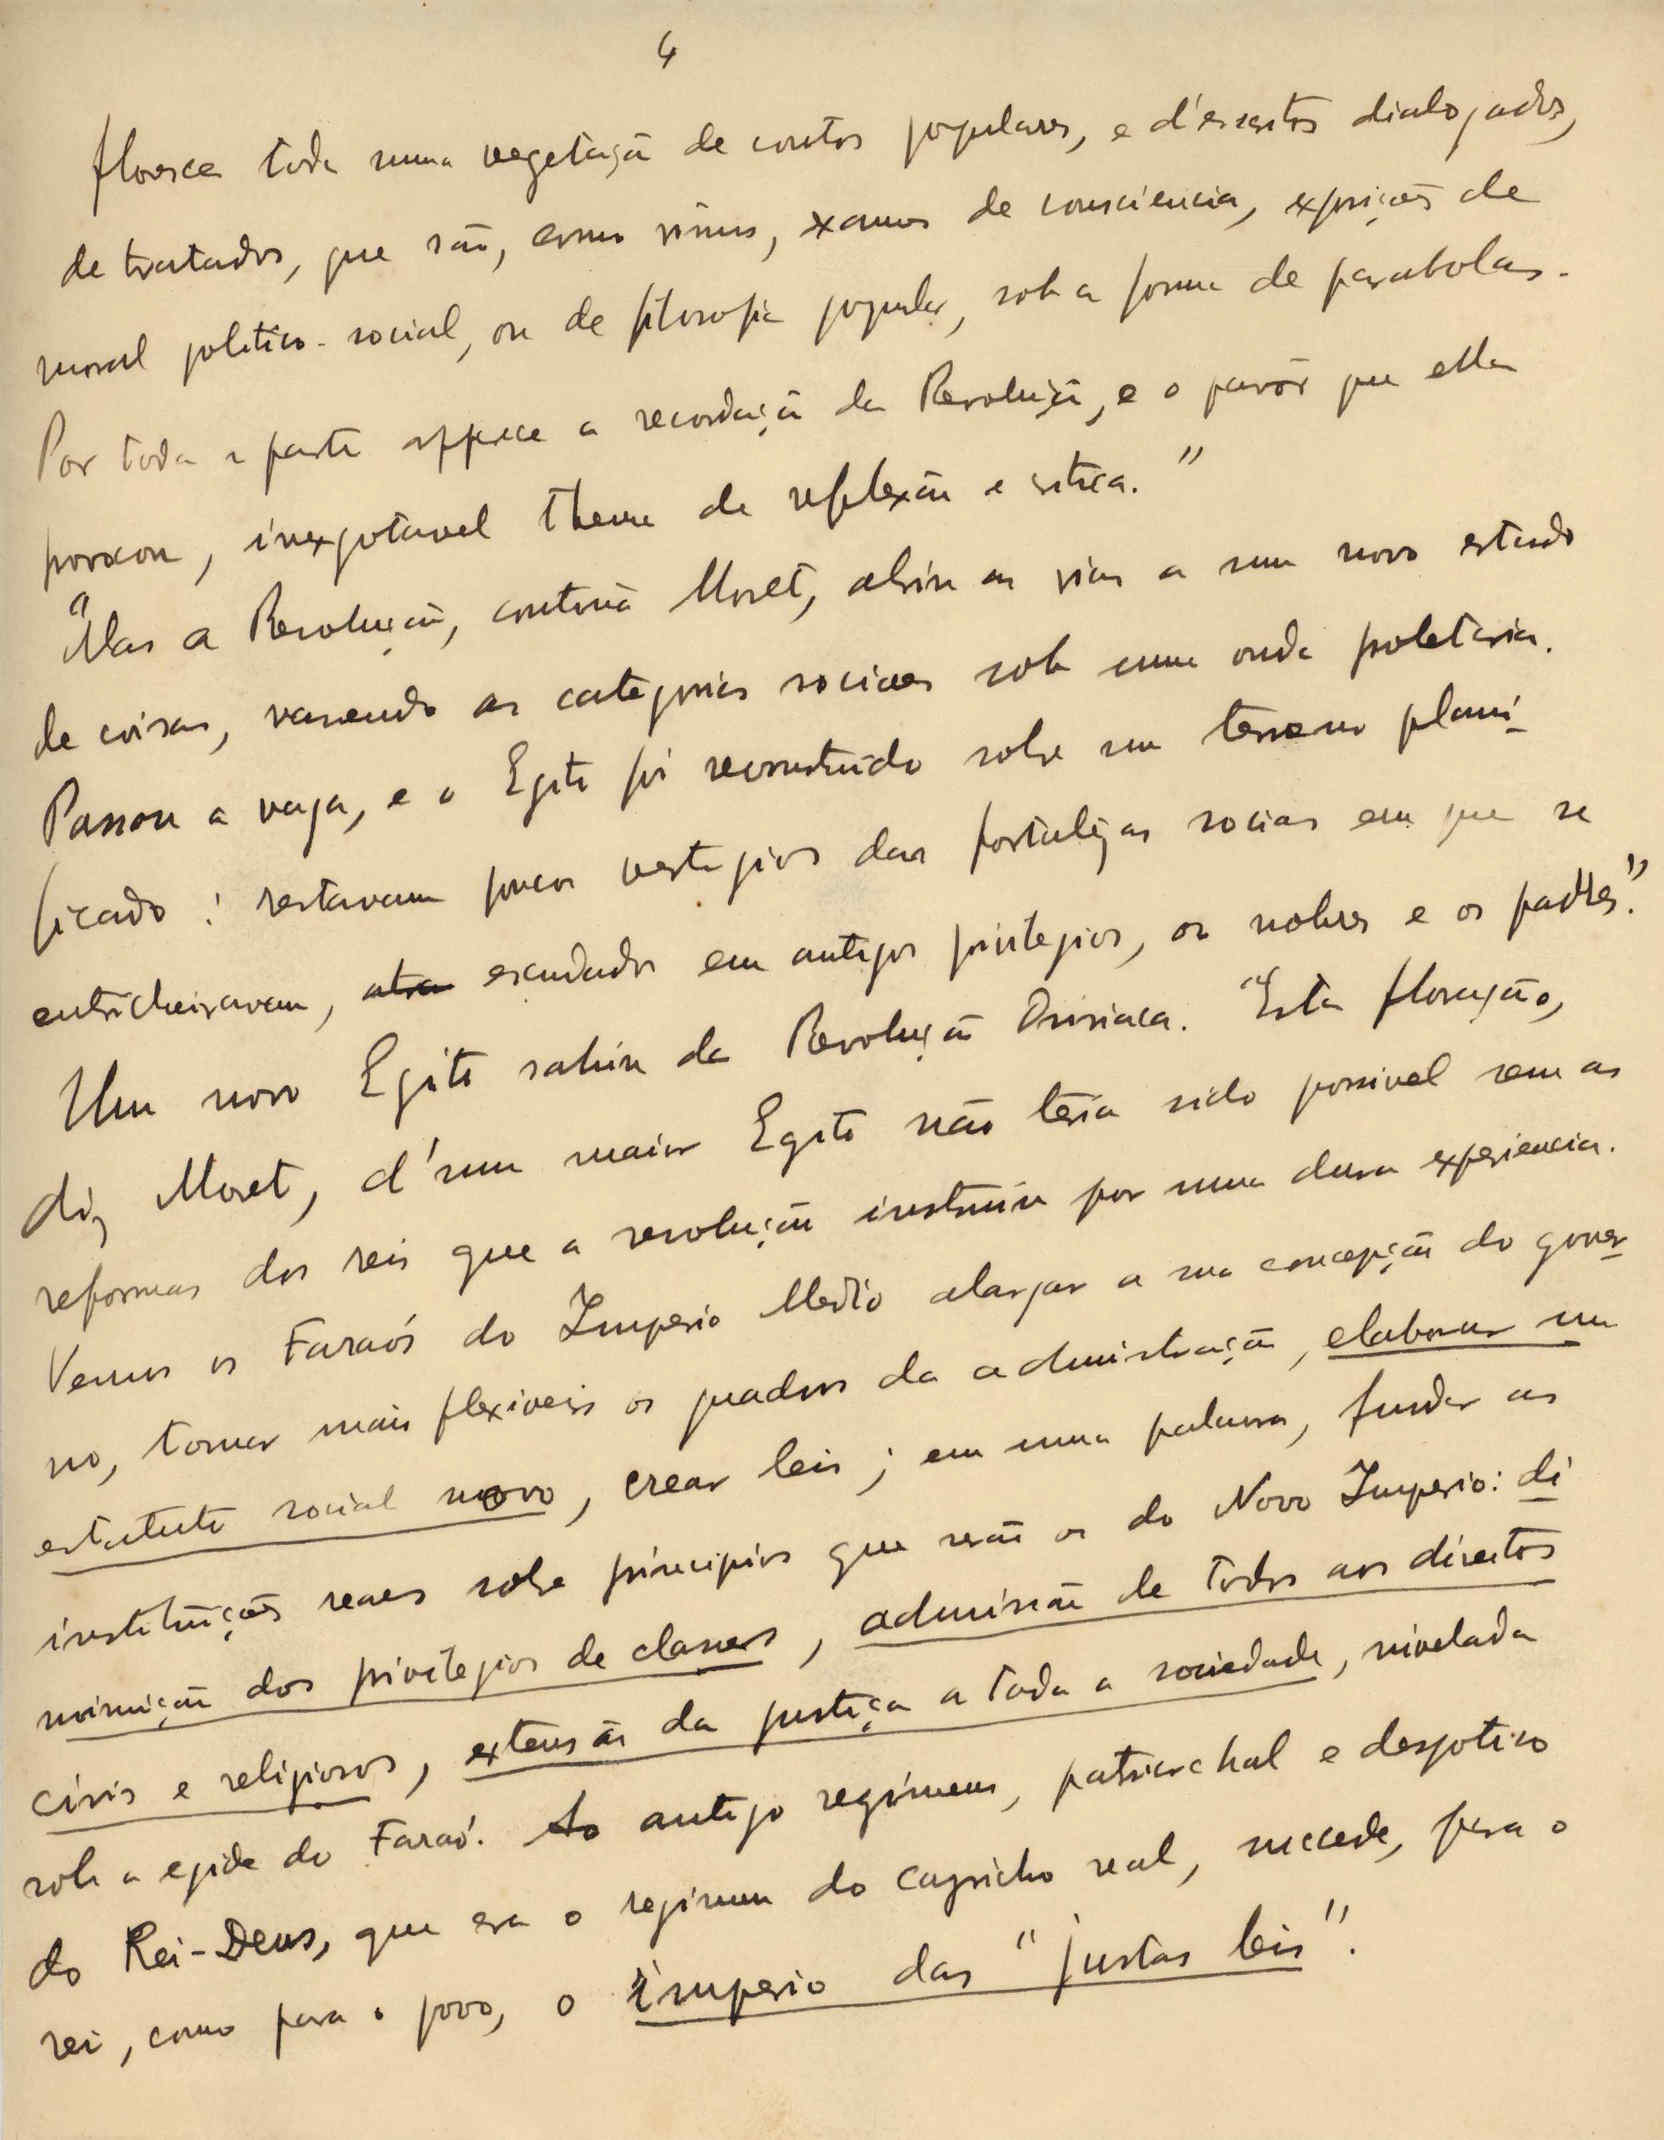 4
floresce toda uma vegetação de contos populares, e d'escritos dialogados,
de tratados, que são, como vimos, exames de consciencia, exposições de
moral politico-social, ou de filosofia popular, sob a forma de parabolas.
Por toda a parte apparece a recordação da Revolução, e o pavor que ella
provocou, inexgotavel thema de reflexão e critica."
"Mas a Revolução, continúa Moret, abriu as vias a um novo estado
de coisas, varrendo as categorias sociaes sob uma onda proletaria.
Passou a vaga, e o Egito foi reconstruido sobre um terreno plani-
ficado: restavam poucos vestigios das fortalezas sociaes em que se
entricheiravam, escudados em antigos privilegios, os nobres e os padres."
Um novo Egito sahiu da Revolução Osiriaca. "Esta floração,
diz Moret, d'um maior Egito não teria sido possivel sem as
reformas dos reis que a revolução instruiu por uma dura experiencia.
Vemos os Faraós do Imperio Medio alargar a sua concepção do gover-
no, tornar mais flexiveis os quadros da administração, elaborar um
estatuto social novo, crear leis; em uma palavra, fundar as
instituições reaes sobre principios que serão os do Novo Imperio: di-
minuição dos privilegios de classes, admissão de todos aos direitos
civis e religiosos, extensão da justiça a toda a sociedade, nivelada
sob a egide do Faraó. Ao antigo regimem, patriarchal e despotico
do Rei-Deus, que era o regimen do capricho real, succede, para o
rei, como para o povo, o imperio das "justas leis".